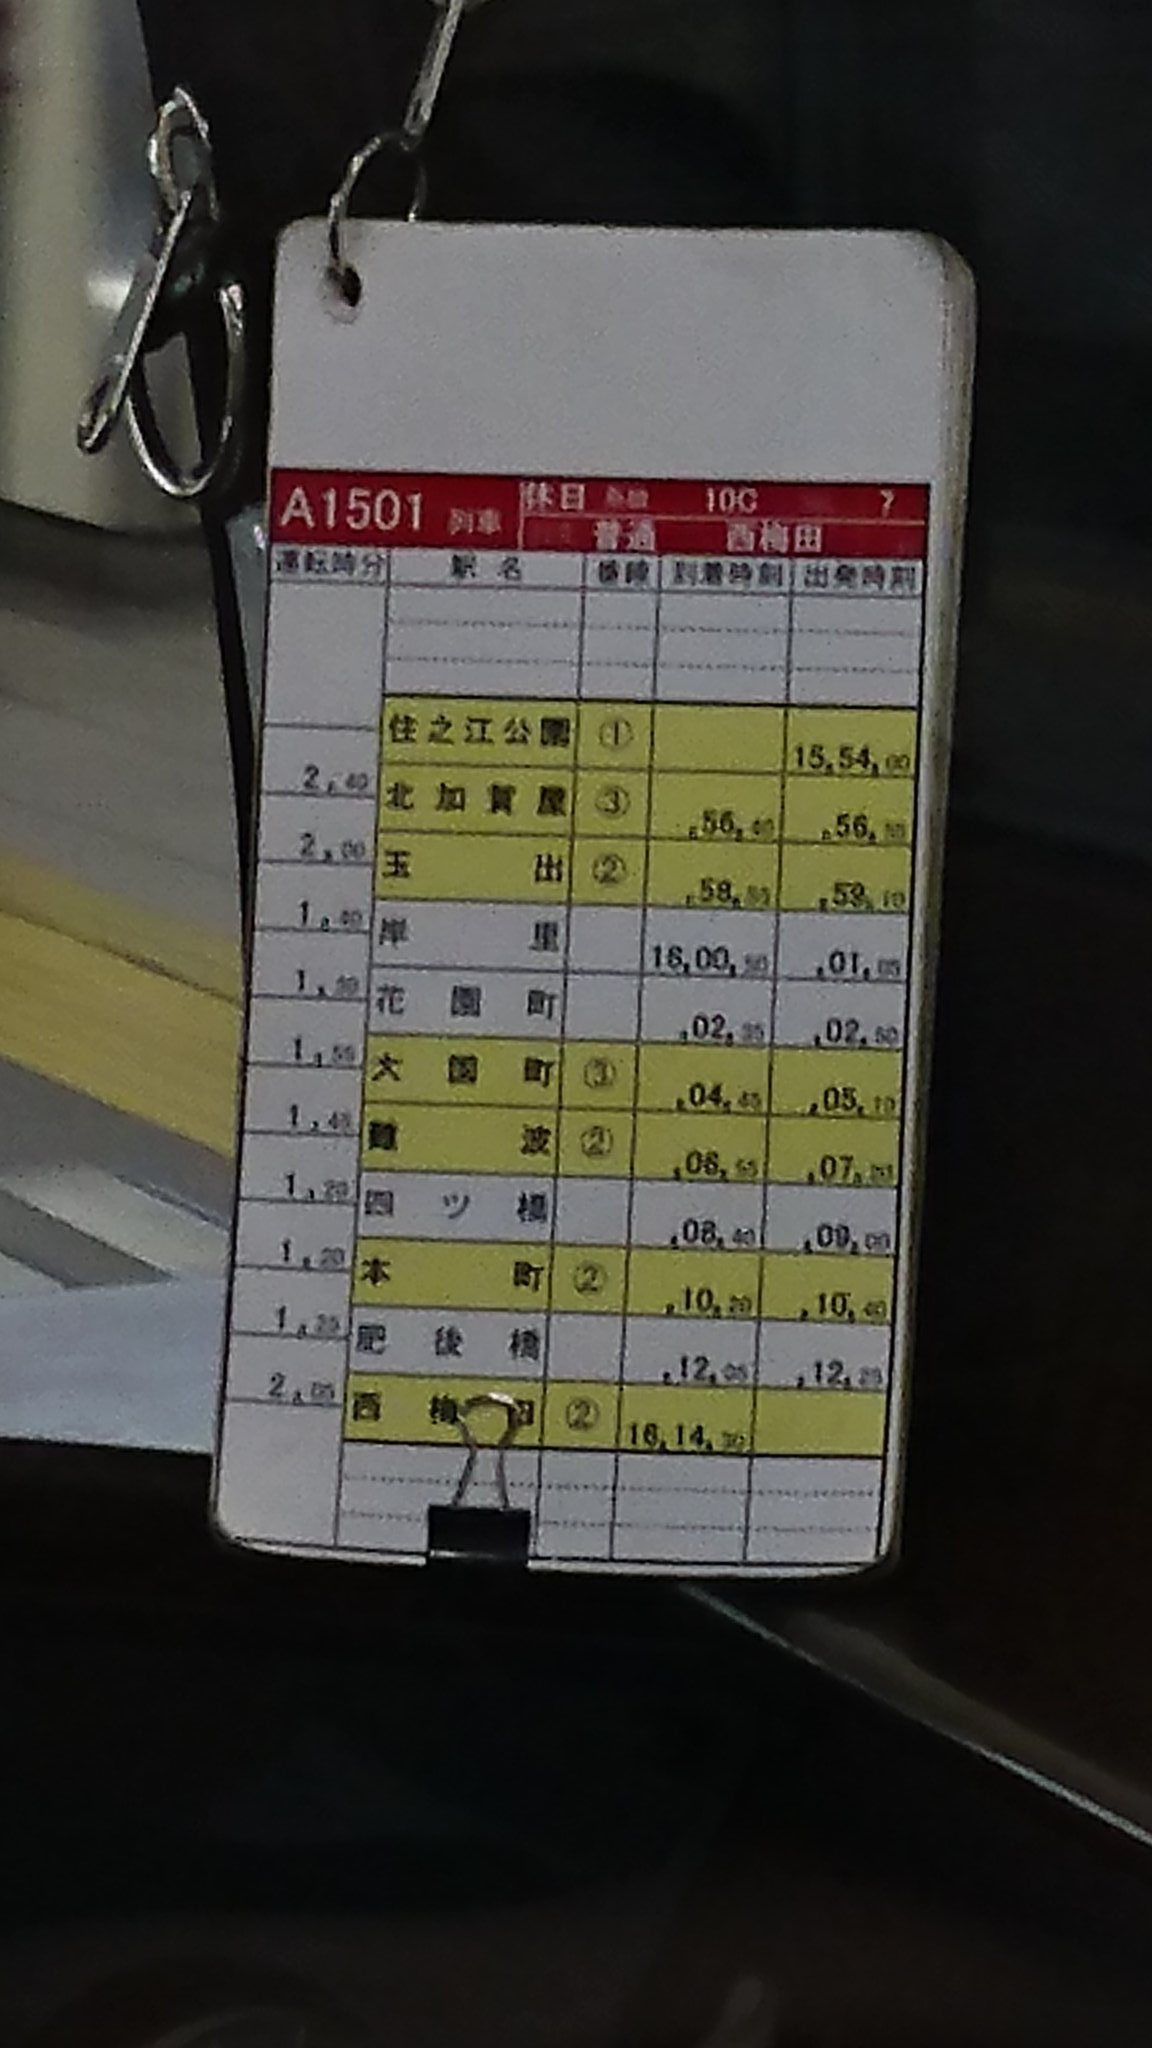 A1501 列車 休日 10C 7
普通 西梅田
運転時分 駅名 番線 到着時刻 出発時刻
住之江公園 ① 15.54.00
2.40
北加賀屋 ③ .56.40 .56.50
2.00
玉出 ② .58.50 .59.10
1.40
岸里 16.00.50 .01.05
1.30
花園町 .02.35 .02.50
1.55
大国町 ③ .04.45 .05.10
1.45
難波 ② .06.55
1.20
四ツ橋 .08.40 .09.00
1.20
本町 ② .10.20 .10.40
1.25
肥後橋 .12.05 .12.25
2.05
西梅田 ② 16.14.30